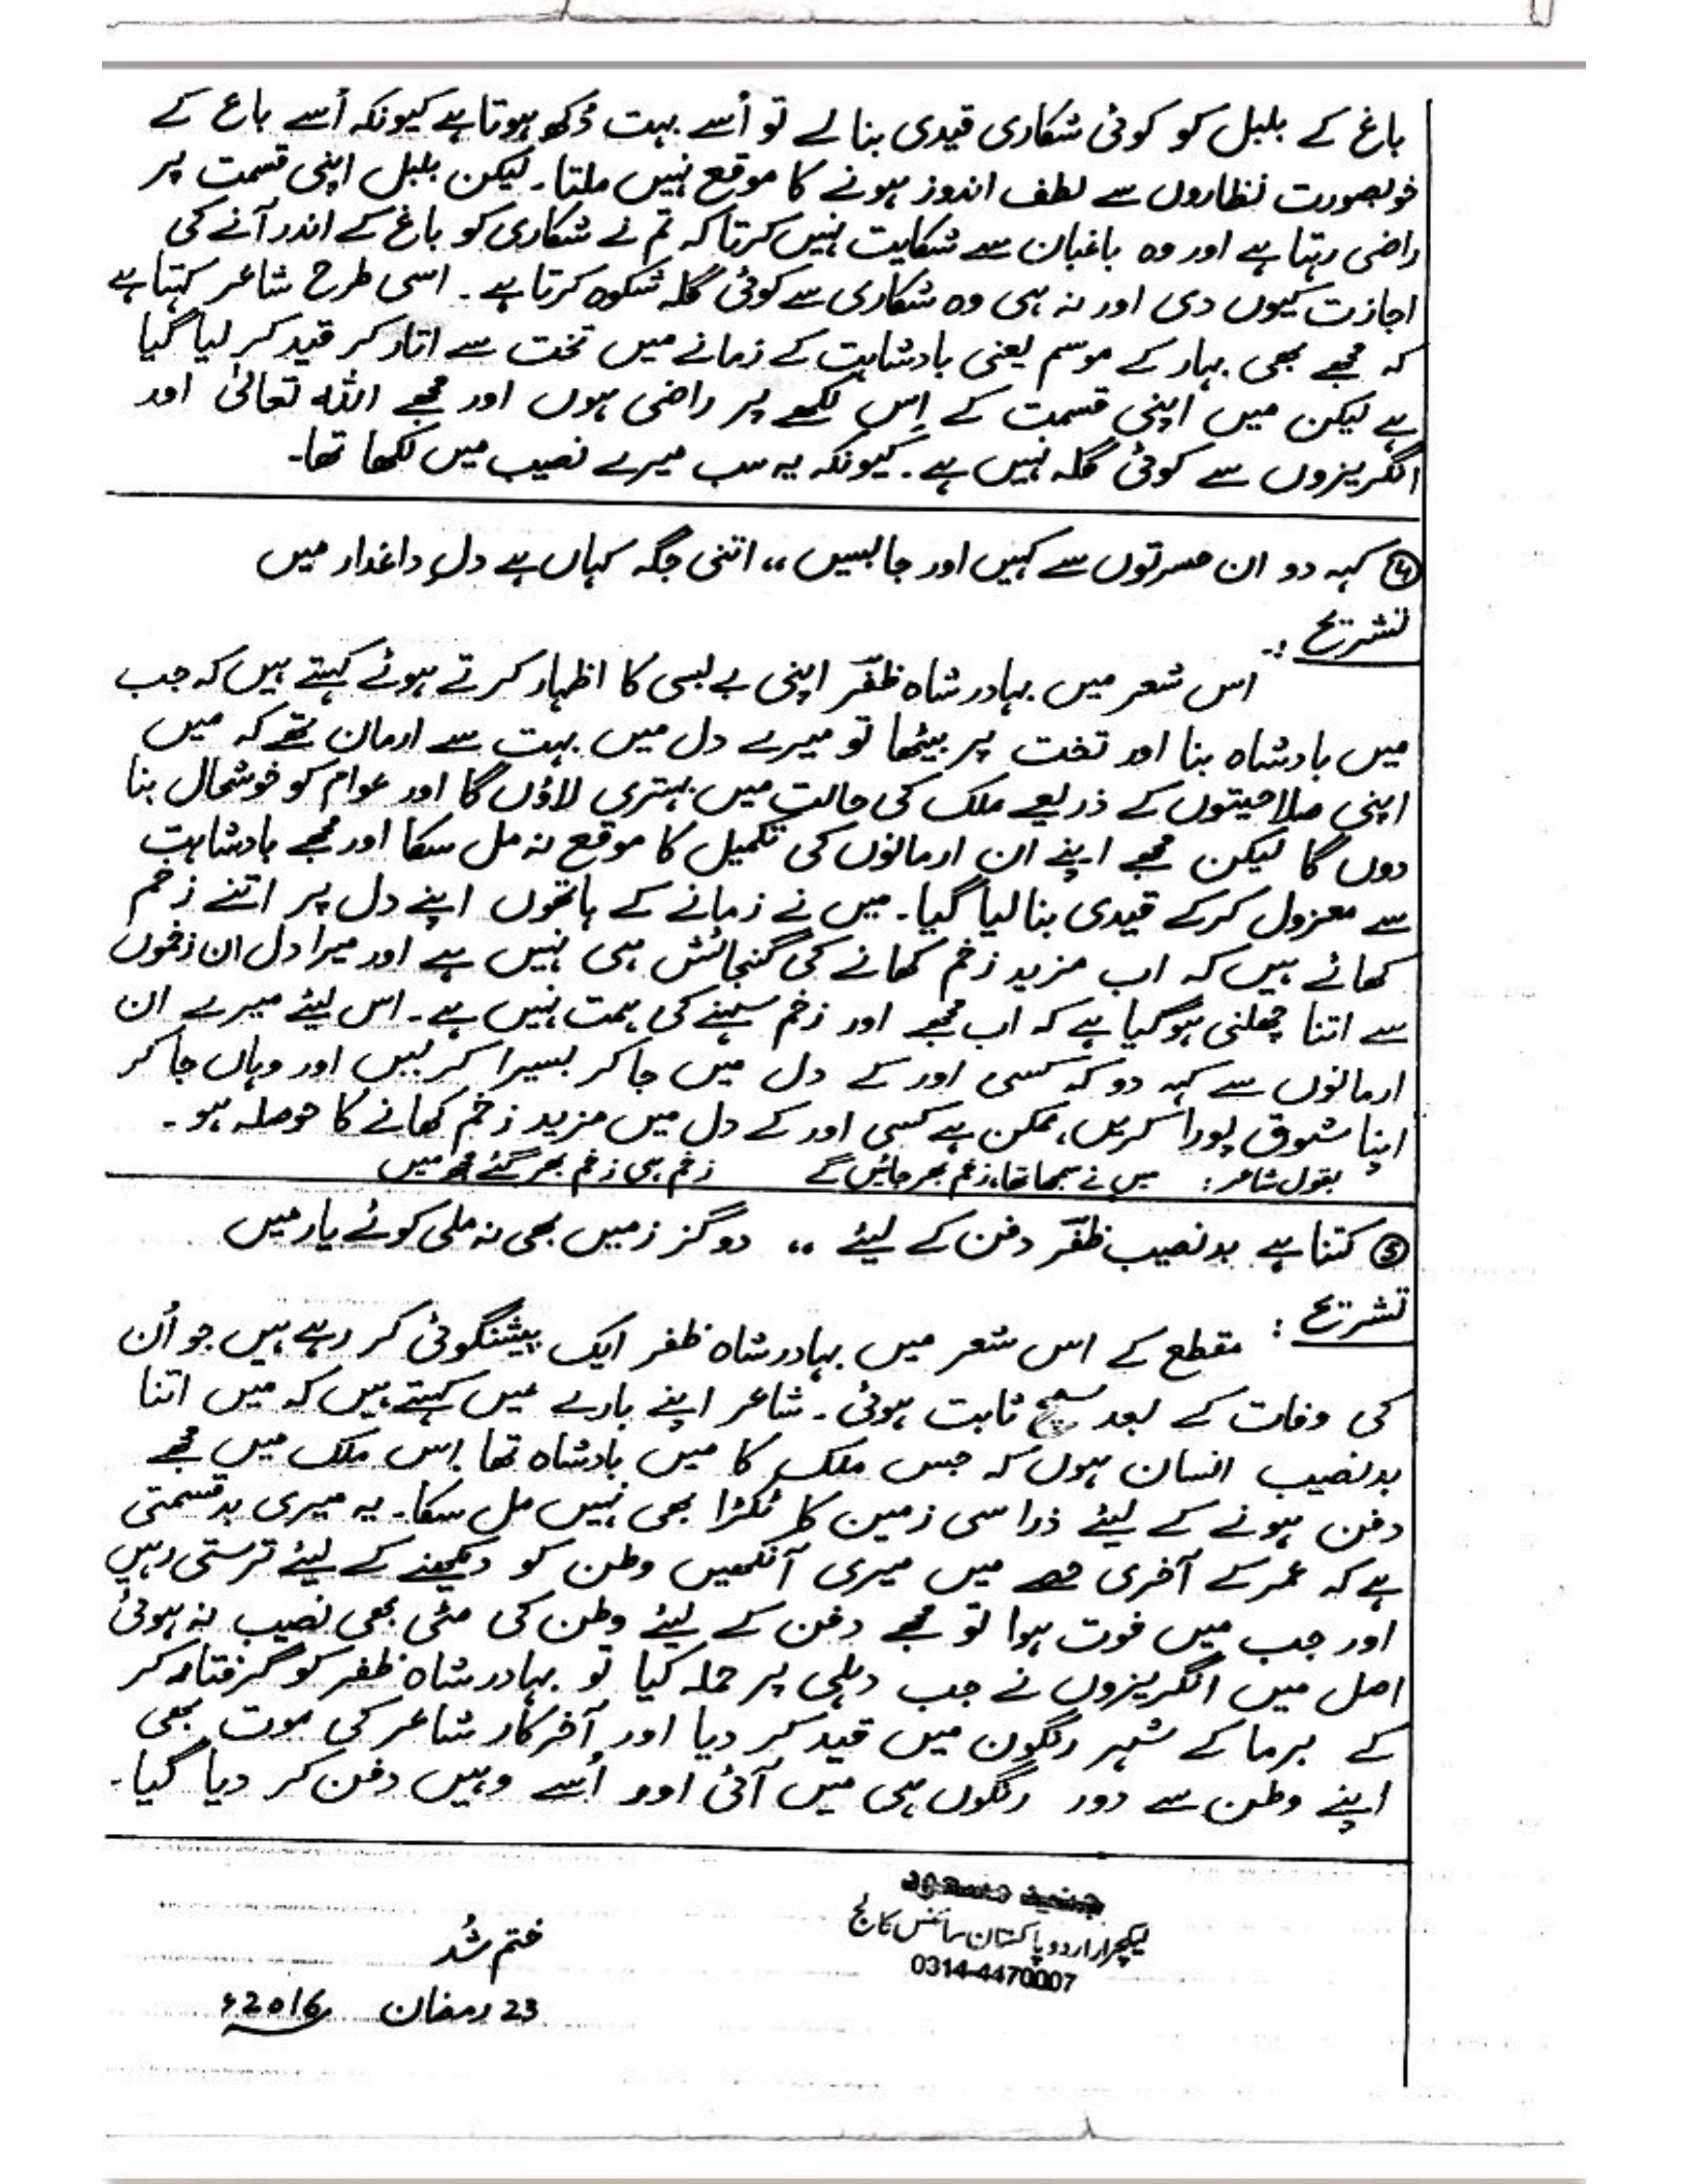 باغ کے بلبل کو کوئی شکاری قیدی بنا لے تو اُسے بہت دُکھ ہوتا ہے کیونکہ اُسے باغ کے
خوبصورت نظاروں سے لطف اندوز ہونے کا موقع نہیں ملتا۔ لیکن بلبل اپنی قسمت پر
راضی رہتا ہے اور وہ باغبان سے شکایت نہیں کرتا کہ تم نے شکاری کو باغ کے اندر آنے کی
اجازت کیوں دی اور نہ ہی وہ شکاری سے کوئی گلہ شکوہ کرتا ہے۔ اسی طرح شاعر کہتا ہے
کہ مجھے بھی بہار کے موسم یعنی بادشاہت کے زمانے میں تخت سے اتار کر قید کر لیا گیا
ہے لیکن میں اپنی قسمت کے اِس لکھے پر راضی ہوں اور مجھے اللہ تعالیٰ اور
انگریزوں سے کوئی گلہ نہیں ہے۔ کیونکہ یہ سب میرے نصیب میں لکھا تھا۔
④ کہہ دو ان حسرتوں سے کہیں اور جا بسیں ،، اتنی جگہ کہاں ہے دلِ داغدار میں
تشریح :۔
اس شعر میں بہادر شاہ ظفؔر اپنی بے بسی کا اظہار کرتے ہوئے کہتے ہیں کہ جب
میں بادشاہ بنا اور تخت پر بیٹھا تو میرے دل میں بہت سے ارمان تھے کہ میں
اپنی صلاحیتوں کے ذریعے ملک کی حالت میں بہتری لاؤں گا اور عوام کو خوشحال بنا
دوں گا لیکن مجھے اپنے ان ارمانوں کی تکمیل کا موقع نہ مل سکا اور مجھے بادشاہت
سے معزول کرکے قیدی بنا لیا گیا۔ میں نے زمانے کے ہاتھوں اپنے دل پر اتنے زخم
کھائے ہیں کہ اب مزید زخم کھانے کی گنجائش ہی نہیں ہے اور میرا دل ان زخموں
سے اتنا چھلنی ہوگیا ہے کہ اب مجھے اور زخم سہنے کی ہمت نہیں ہے۔ اس لیئے میرے ان
ارمانوں سے کہہ دو کہ کسی اور کے دل میں جا کر بسیرا کر لیں اور وہاں جا کر
اپنا شوق پورا کریں، ممکن ہے کسی اور کے دل میں مزید زخم کھانے کا حوصلہ ہو۔
بقول شاعر: میں نے سمجھا تھا، زخم بھر جائیں گے زخم ہی زخم بھر گئے مجھ میں
⑤ کتنا ہے بدنصیب ظفؔر دفن کے لیئے ،، دو گز زمیں بھی نہ ملی کوئے یار میں
تشریح : مقطع کے اس شعر میں بہادر شاہ ظفر ایک پیشنگوئی کر رہے ہیں جو اُن
کی وفات کے بعد سچ ثابت ہوئی۔ شاعر اپنے بارے میں کہتے ہیں کہ میں اتنا
بدنصیب انسان ہوں کہ جس ملک کا میں بادشاہ تھا اِس ملک میں مجھے
دفن ہونے کے لیئے ذرا سی زمین کا ٹکڑا بھی نہیں مل سکا۔ یہ میری بدقسمتی
ہے کہ عمر کے آخری حصے میں میری آنکھیں وطن کو دیکھنے کے لیئے ترستی رہیں
اور جب میں فوت ہوا تو مجھے دفن کے لیئے وطن کی مٹی بھی نصیب نہ ہوئی
اصل میں انگریزوں نے جب دہلی پر حملہ کیا تو بہادر شاہ ظفر کو گرفتار کر
کے برما کے شہر رنگون میں قید کر دیا اور آخرکار شاعر کی موت بھی
اپنے وطن سے دور رنگوں ہی میں آئی اور اُسے وہیں دفن کر دیا گیا۔
جنید مسعود
لیکچرار اردو پاکستان سائنس کالج
0314-4470007
ختم شُد
23 رمضان 2016ء